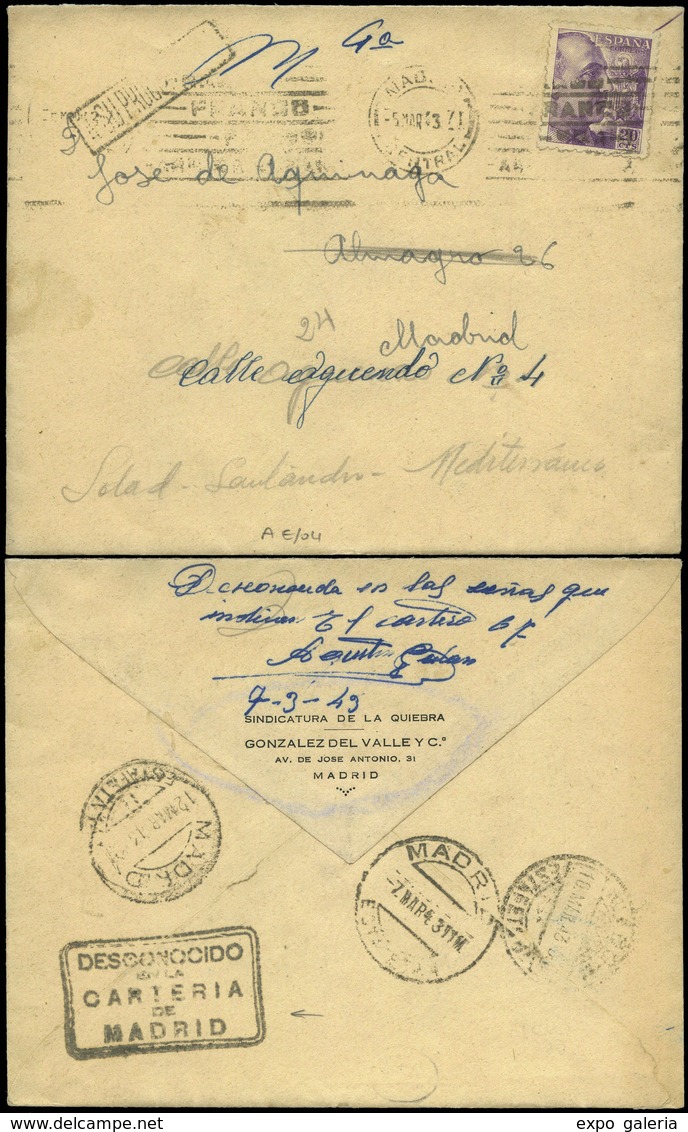 Mª Gª
ESPAÑA
CORREOS
20
CTS
5 MAR 43
CENTRAL
FRANCO
José de Aquinaga
Almagro 26
24
Madrid
Calle aguendo Nº 4
Soldad - Santander - Mediterráneo
A E/04
Desconocida en las señas que
indican El cartero 67
Agustin
7-3-43
SINDICATURA DE LA QUIEBRA
GONZALEZ DEL VALLE Y C.ª
AV. DE JOSE ANTONIO, 31
MADRID
ESTAFETA
12 MAR
MADRID
MADRID
7 MAR 43 11M
ESTAFETA
10 MAR 43
DESCONOCIDO
EN LA
CARTERIA
DE
MADRID
www.delcampe.net
expo galeria